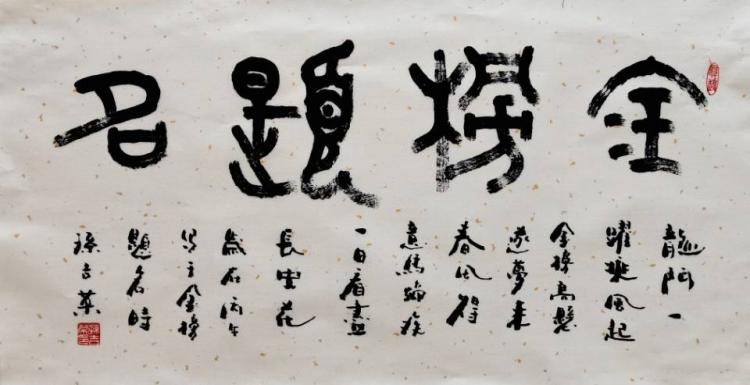 金榜题名
龍門一
躍乘風起
金榜高懸
逐夢来
春風得
意馬蹄疾
一日看盡
長安花
歲在丙午
金榜
題名時
孫立英